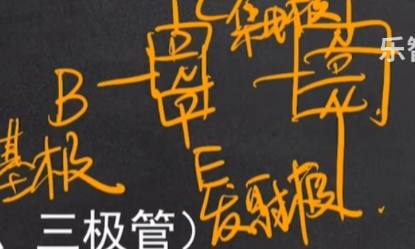 C 集电极
P N
B N P
P N
基极 E
发射极
三极管）
乐智